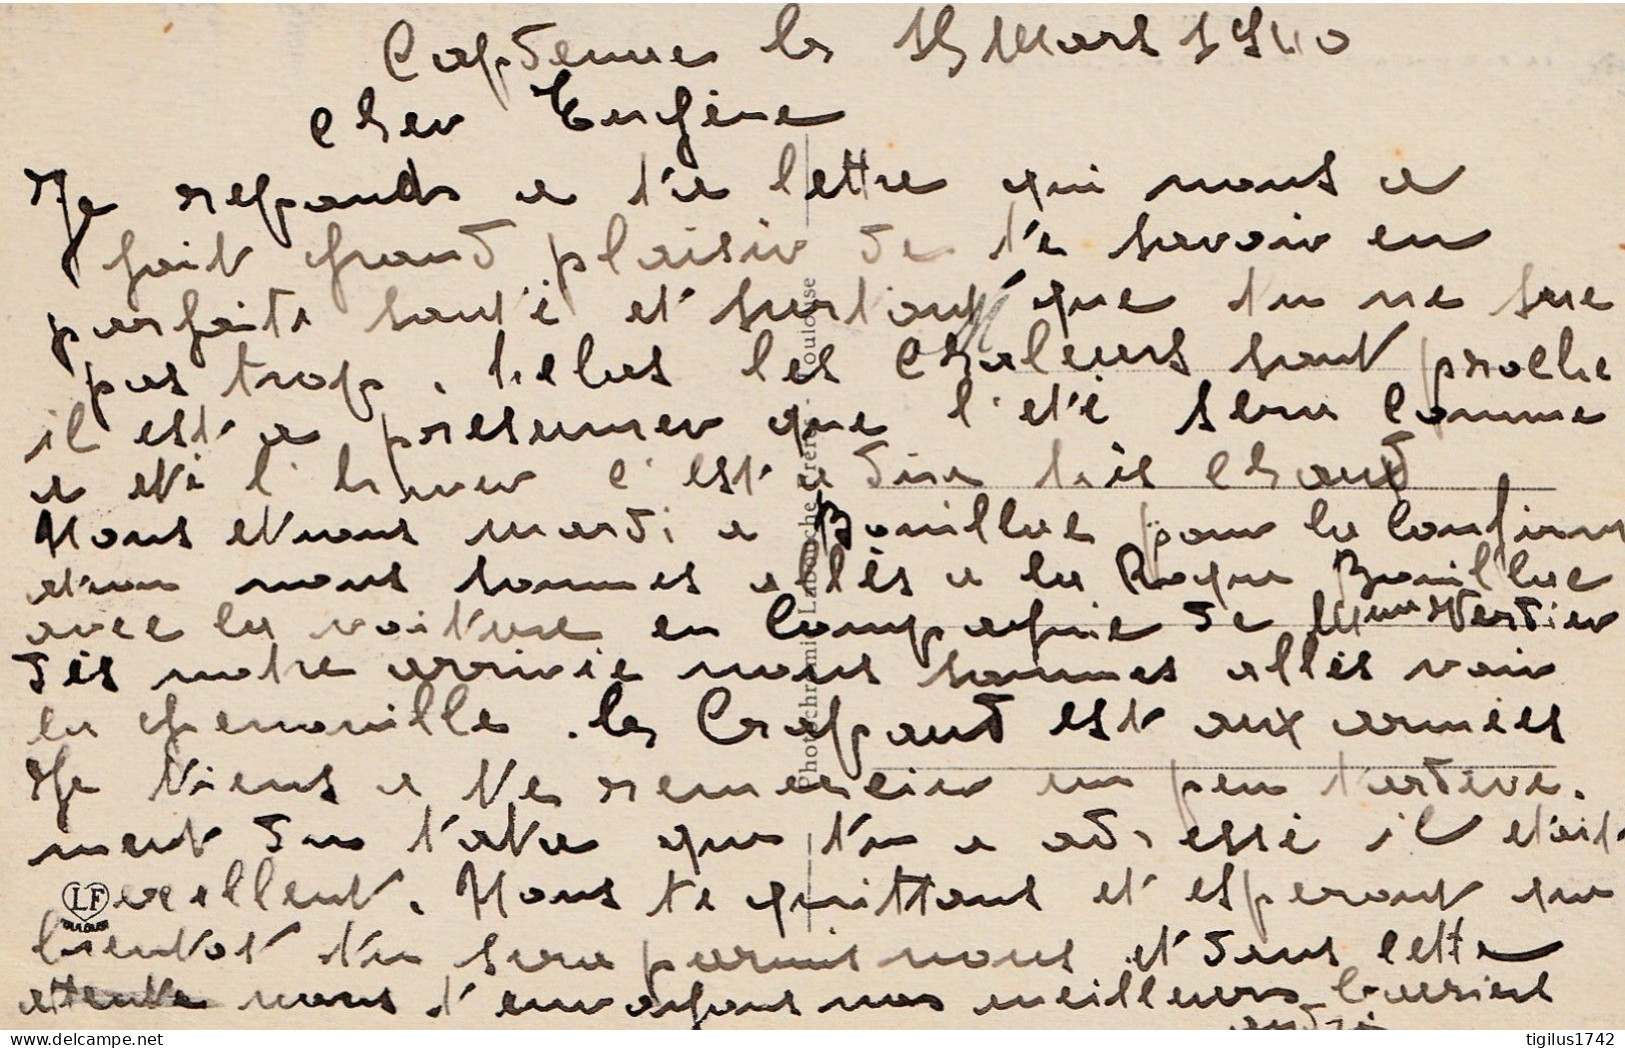 Capdenac le 15 Mars 1940
Cher Eugène
Je repands a t'a lettre qui nous a
fait grand plaisir de te savoir en
parfaite santé et surtout que tu ne sue
pas trop, helas les Chaleurs sont proche
il est a présumer que l'été sera Comme
a été l'hiver c'est a dire très chaud
Nous etions mardi a Bouillac pour la Confirm
ation nous sommes allés a la Roque Bouillac
avec la voiture en Compagnie de Mme Verdier
dès notre arrivée nous sommes allés voir
la grenouille. le Crapaud est aux armées
Je viens a te remercier un peu tardive.
ment du tabac que tu a adressé il etait
excellent. Nous te quittons et esperont que
bientot tu sera parmis nous et dans cette
attente nous t'envoyons nos meilleurs baisers
André
Photochromi Labouche Frères, Toulouse
LF
TOULOUSE
delcampe.net
tigilus1742